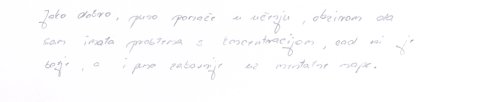 Jako dobro, puno pomaže u učenju, obzirom da
sam imala problema s koncentracijom, sad mi je
bolje, a i puno zabavnije uz mentalne mape.